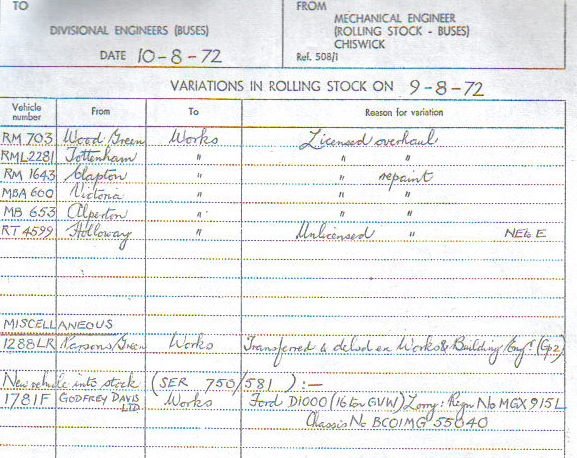 TO
DIVISIONAL ENGINEERS (BUSES)
DATE 10-8-72
FROM
MECHANICAL ENGINEER
(ROLLING STOCK - BUSES)
CHISWICK
Ref. 508/1
VARIATIONS IN ROLLING STOCK ON 9-8-72
Vehicle number From To Reason for variation
RM 703 Wood Green Works Licensed overhaul
RML2281 Tottenham " " "
RM 1643 Clapton " " repaint
MBA 600 Victoria " " "
MB 653 Alperton " " "
RT 4599 Holloway " Unlicensed " NELS E
MISCELLANEOUS
1288LR Parsons Green Works Transferred & debited on Works & Building Engr. (Gp2)
New vehicle into stock (SER 750/581):—
1781F GODFREY DAVIS LTD Works Ford D1000 (16 ton GVW) Lorry: Regn No MGX 915L
Chassis No BC01MG 55040